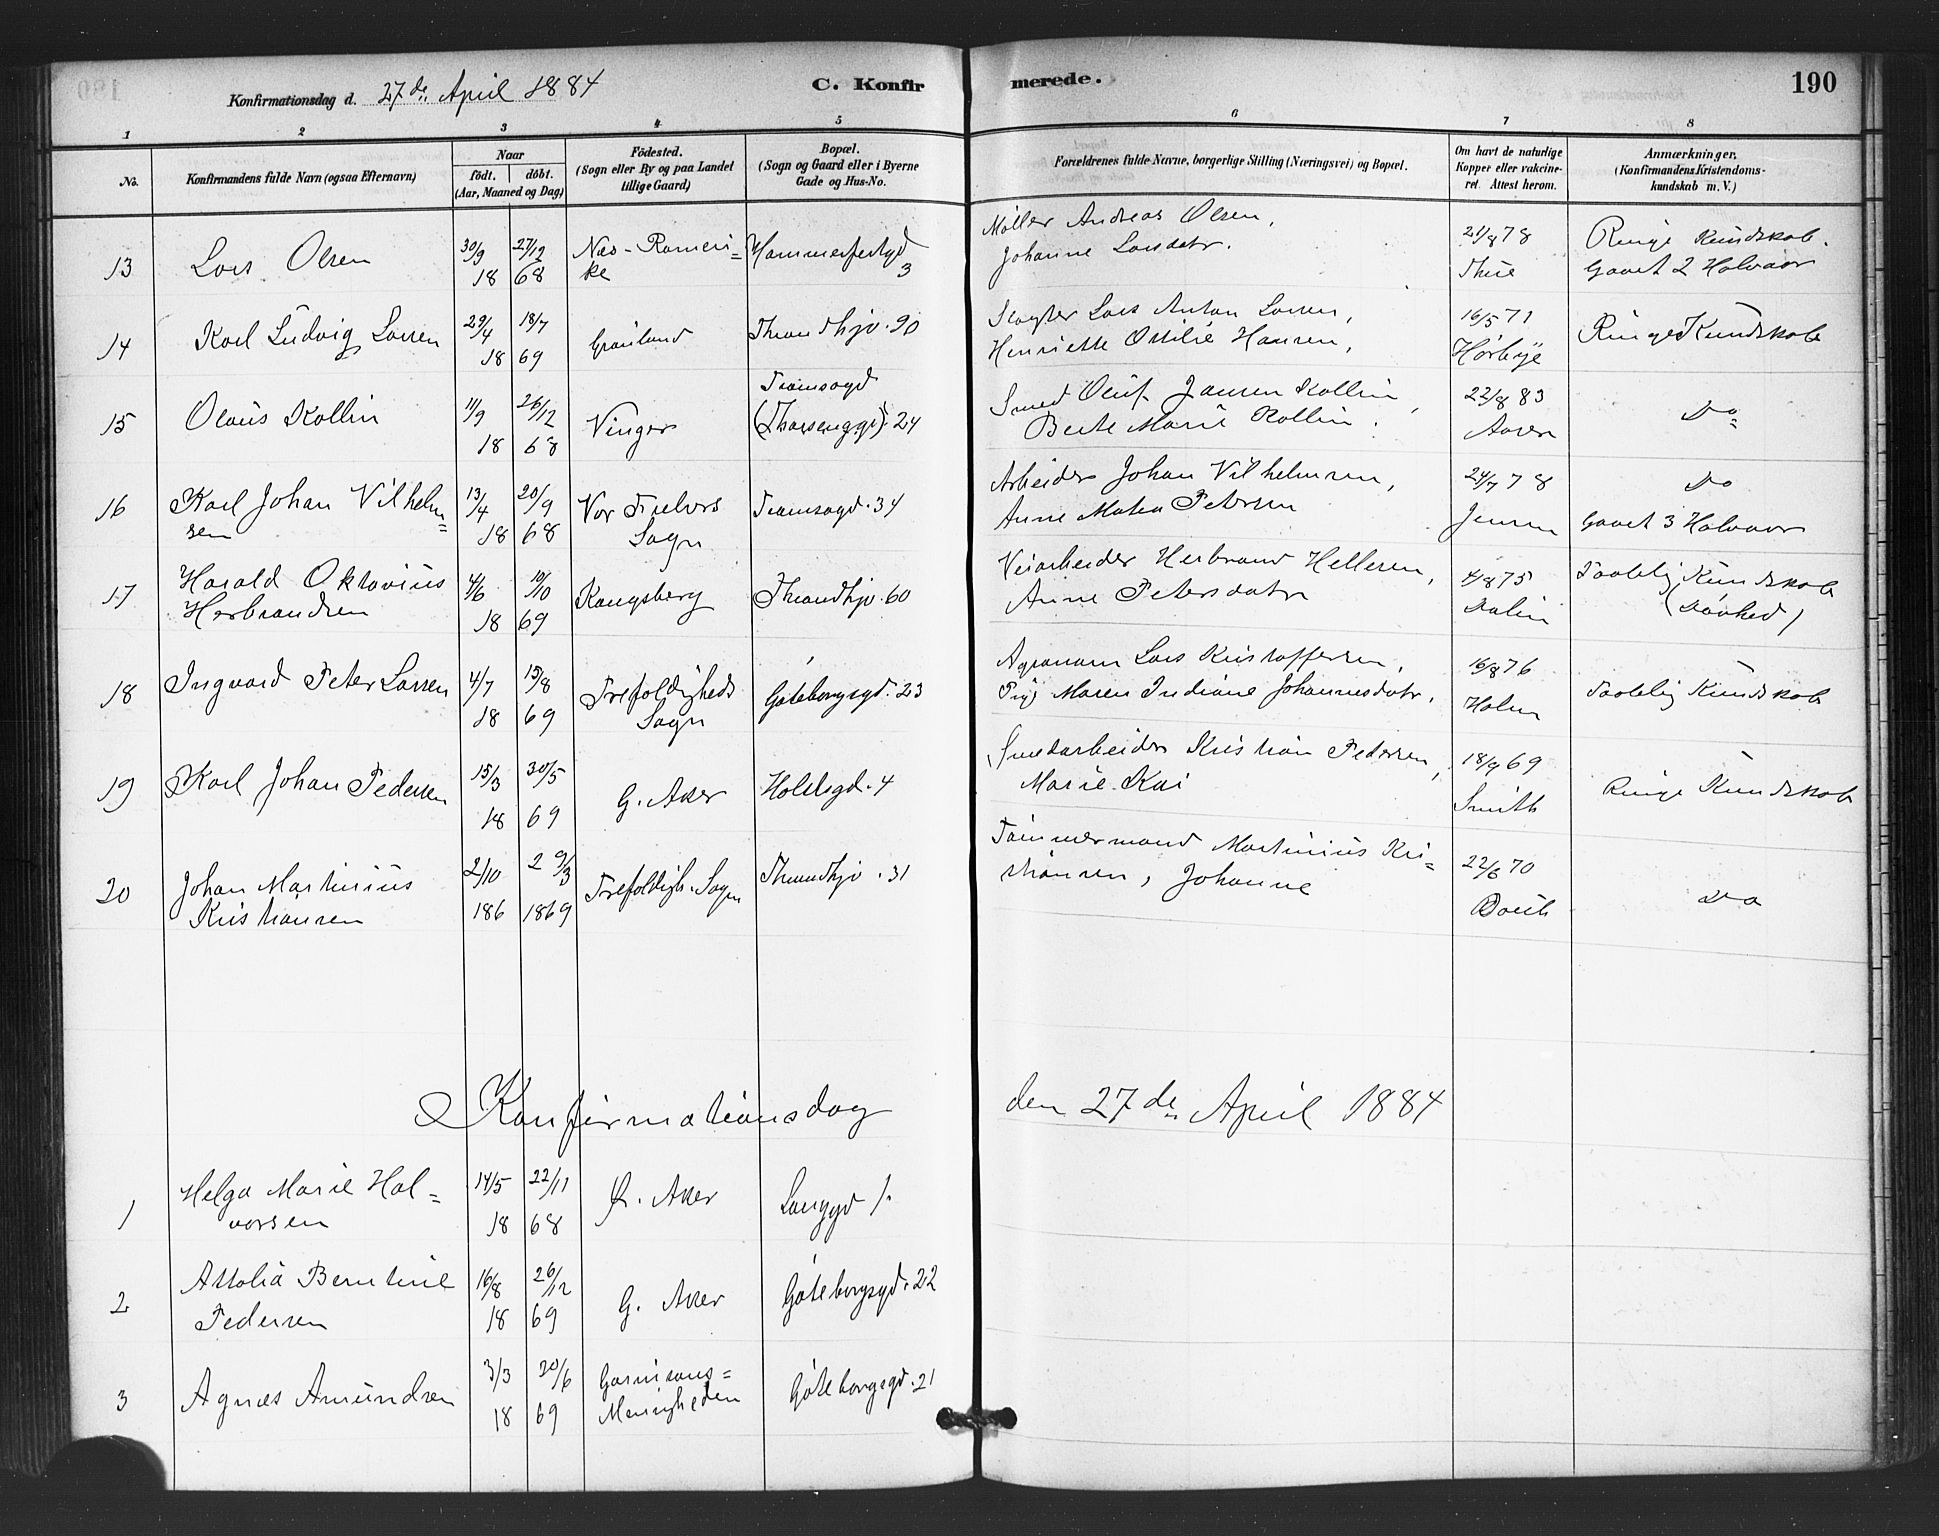 Konfirmationsdag d. 27de April 1884
C. Konfirmerede.
190
1 2 3 4 5 6 7 8
No.
Konfirmandens fulde Navn (ogsaa Efternavn)
Naar
födt. döbt.
(Aar, Maaned og Dag)
Födested.
(Sogn eller By og paa Landet
tillige Gaard)
Bopæl.
(Sogn og Gaard eller i Byerne
Gade og Hus-No.
Forældrenes fulde Navne, borgerlige Stilling (Næringsvei) og Bopæl.
Om havt de naturlige
Kopper eller vakcine-
ret. Attest herom.
Anmærkninger.
(Konfirmandens Kristendoms-
kundskab m. V.)
13 Lars Olsen 30/9 18 27/12 68 Næs - Romeri=
ke
Hammerfestgd
3
Møller Andreas Olsen,
Johanne Larsdatr.
21/8 78
Thue
Ringe Kundskab.
Gaaet 2 Halvaar
14 Karl Ludvig Larsen 29/4 18 18/7 69 Grønland Throndhjv. 90
Slagter Lars Anton Larsen,
Henriette Ottilie Hansen,
16/5 71
Hørbye
Ringe Kundskab
15 Olaus Kollin 11/9 18 26/12 68 Vinger
Tromsøgd
24
Smed Oluf Jansen Kollin,
Berte Marie Kollin.
23/8 83
Aaren
Do
16 Karl Johan Vilhelm=
sen
13/4 18 20/9 68
Vor Frelsers
Sogn
Tromsøgd. 34
Arbeider Johan Vilhelmsen,
Anne Mathea Petersen
24/7 78
Jensen
Do
Gaaet 3 Halvaar
17 Harald Oktavius
Herbrandsen
4/6 18 10/10 69
Kongsberg Throndhjv. 60
Veiarbeider Herbrand Hellesen,
Anne Petersdatr
4/8 75
Dalin
Taalelig Kundskab
(Døvhed)
18 Ingvard Peter Larsen 4/7 18 15/8 69
Trefoldigheds
Sogn
Gøteborgsgd. 23
Agronom Lars Kristoffersen,
Pig. Maren Indiane Johannesdatr.
16/8 76
Holm
Taalelig Kundskab
19 Karl Johan Pedersen 15/3 18 30/5 69
G. Aker Holstsgd. 4
Smedarbeider Kristian Pedersen,
Marie
18/9 69
Smith
Ringe Kundskab
20 Johan Martinius
Kristiansen
2/10 186 2 9/3 1869
Trefoldigh. Sogn Throndhjv. 31
Tømmermand Martinius Kri=
stiansen, Johanne
22/6 70
Do
Konfirmationsdag den 27de April 1884
1 Helga Marie Hal=
vorsen
14/5 18 22/11 68
Ø. Aker Langgd 1.
2 Attolia Berntine
Pedersen
16/8 18 26/12 69
G. Aker Gøteborgsgd. 22
3 Agnes Amundsen 3/3 18 20/6 69
Garnisons=
Menigheden
Gøteborgsgd. 21